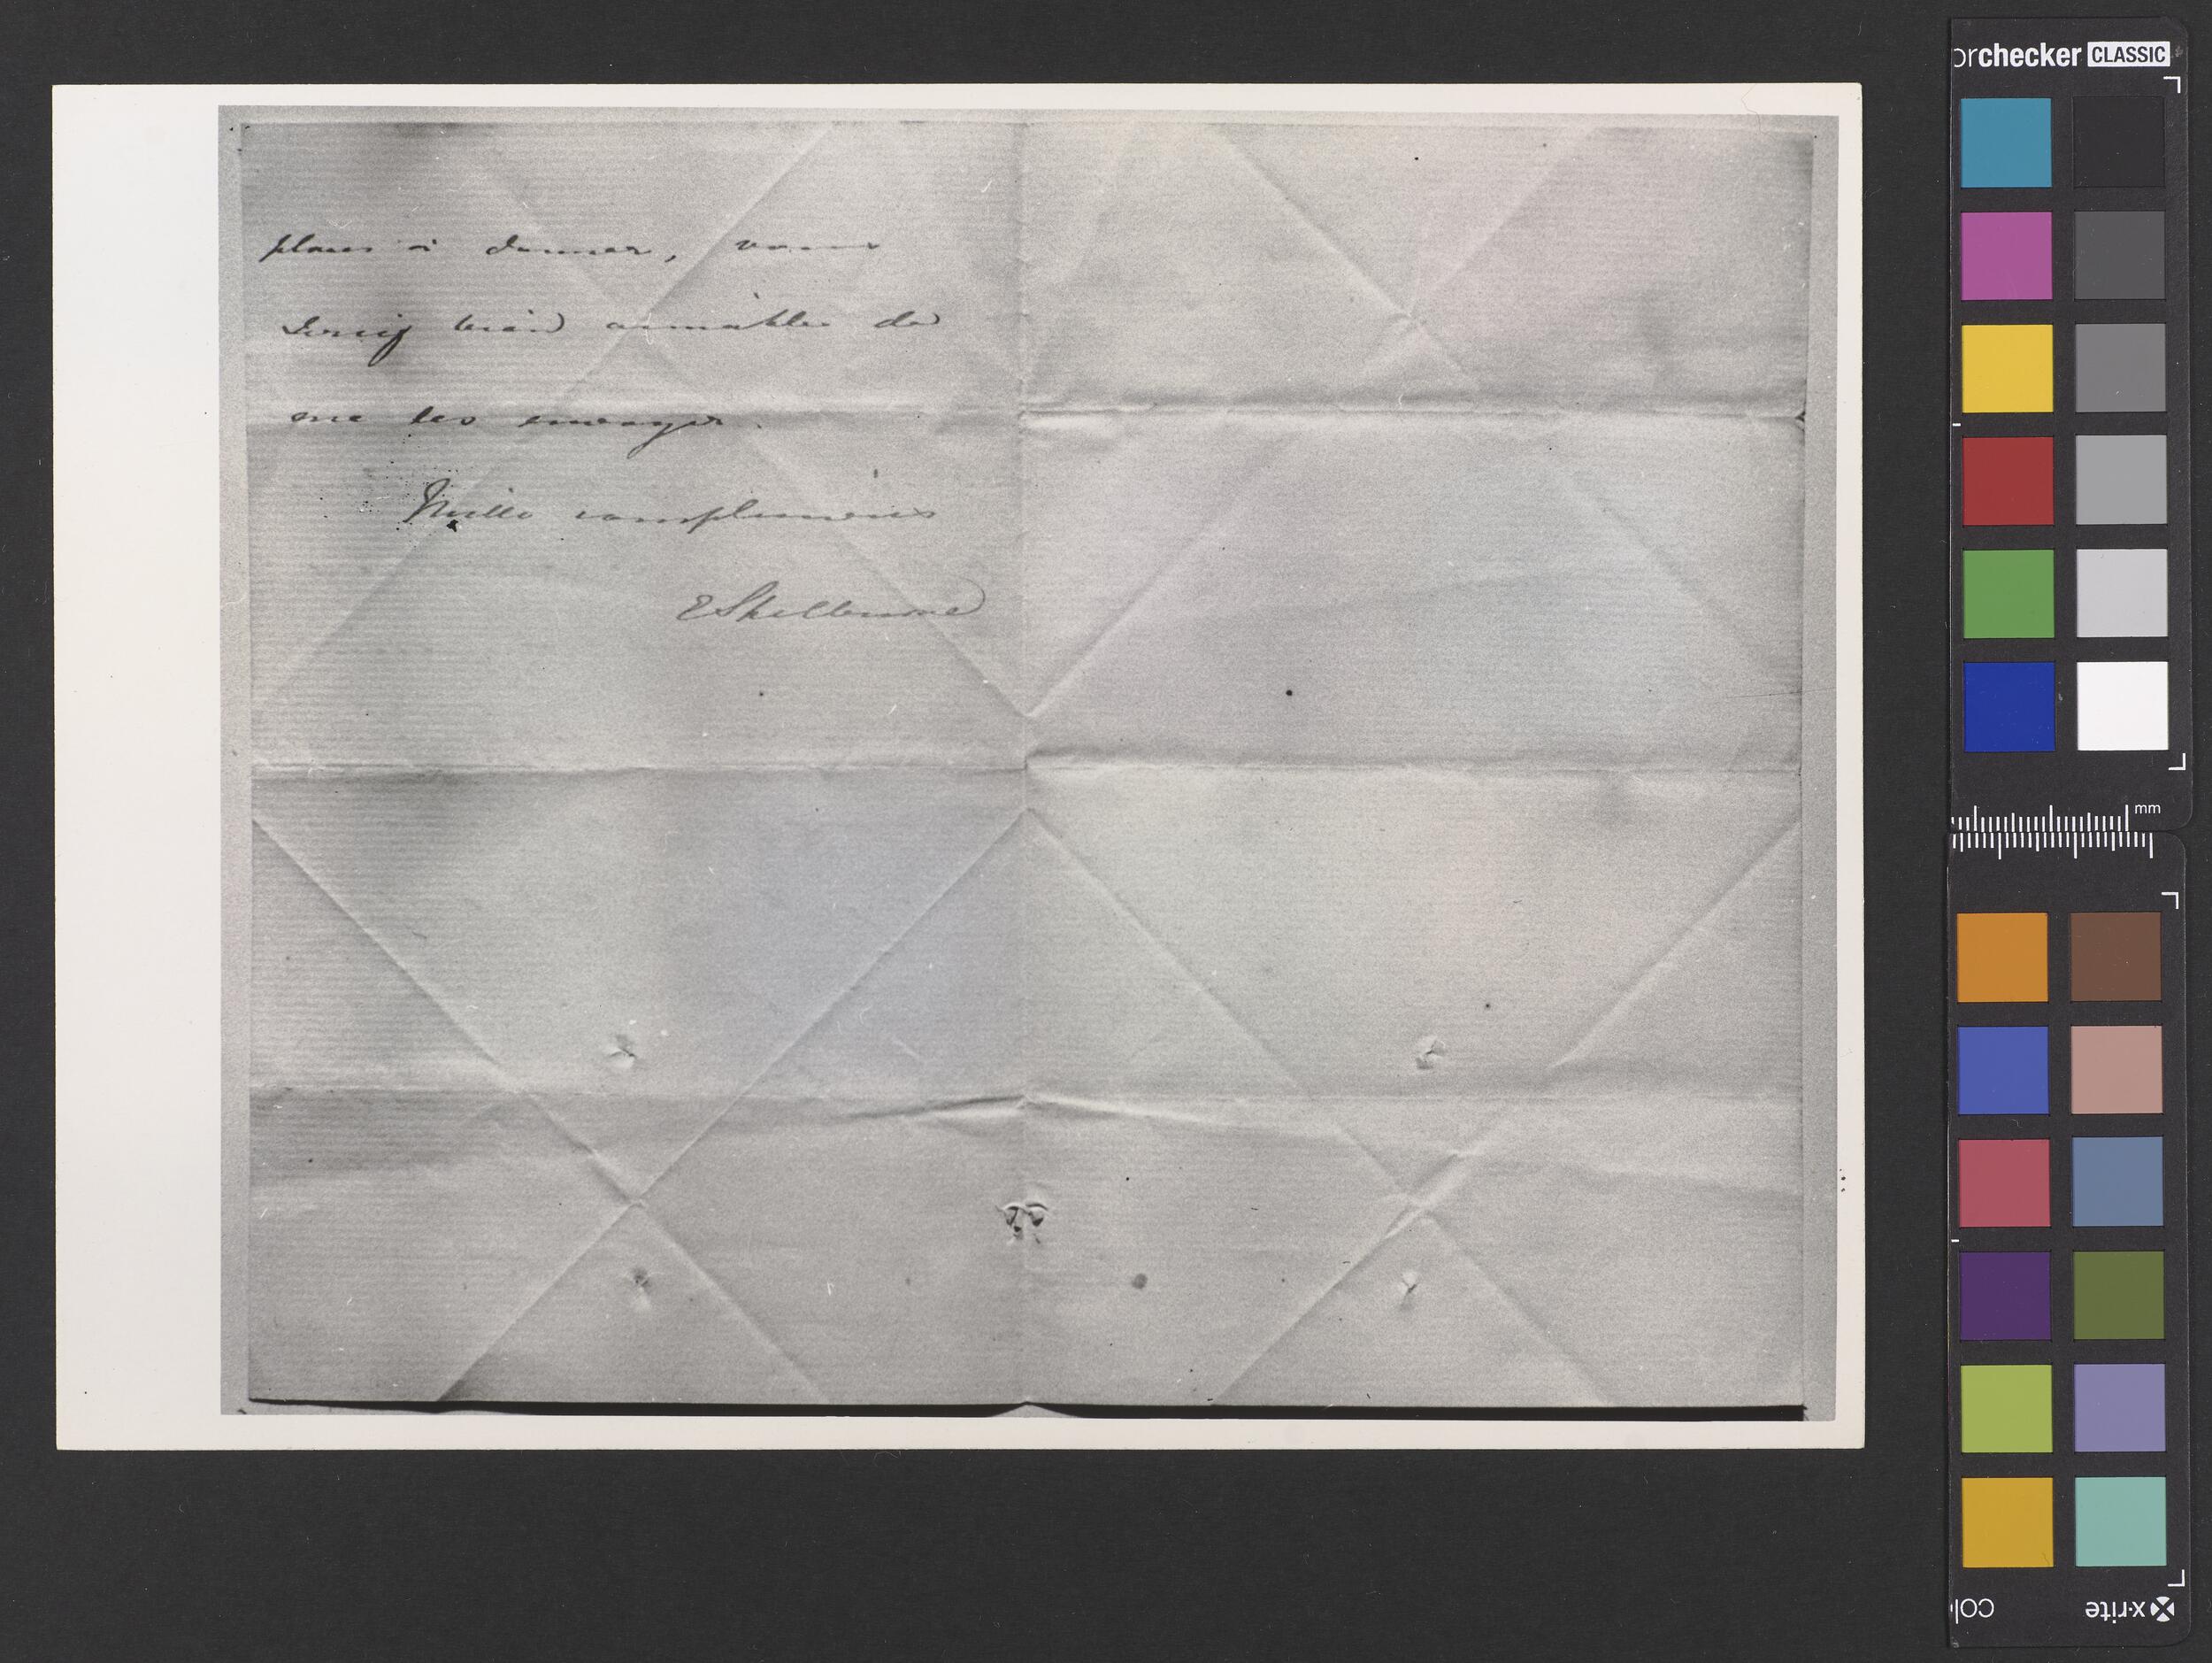 places à donner, vous
seriez bien aimable de
me les envoyer.
Mille complimens
EShelburne
orchecker CLASSIC
mm
x-rite
col